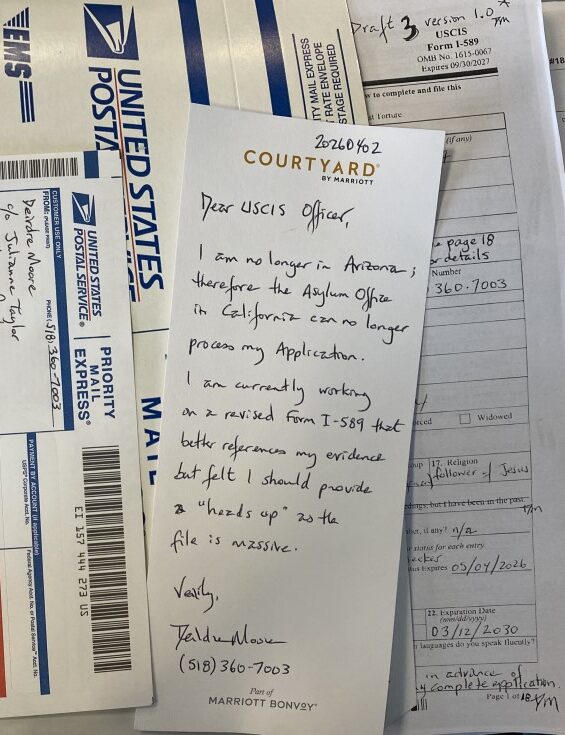 EMS
UNITED STATES
POSTA
MA
ITY MAIL EXPRESS
RATE ENVELOPE
STAGE REQUIRED
CUSTOMER USE ONLY
FROM: (PLEASE PRINT)
PHONE (518) 360-7003
Deirdre Moore
c/o Julianne Taylor
UNITED STATES
POSTAL SERVICE®
PRIORITY
MAIL
EXPRESS®
PAYMENT BY ACCOUNT (if applicable)
USPS® Corporate Acct. No.
Federal Agency Acct. No. or Postal Service™ Acct. No.
EI 157 444 273 US
20260402
COURTYARD®
BY MARRIOTT
Dear USCIS Officer,
I am no longer in Arizona;
therefore the Asylum Office
in California can no longer
process my Application.
I am currently working
on a revised Form I-589 that
better references my evidence
but felt I should provide
a "heads up" as the
file is massive.
Verily,
Deirdre Moore
(518) 360-7003
Part of
MARRIOTT BONVOY®
Draft 3 version 1.0
USCIS
Form I-589
OMB No. 1615-0067
Expires 09/30/2027
w to complete and file this
Torture
(if any)
e page 18
r details
Number
360.7003
Widowed
17. Religion
follower of Jesus
dings, but I have been in the past.
if any? n/a
status for each entry
Expires 05/04/2026
22. Expiration Date
(mm/dd/yyyy)
03/12/2030
languages do you speak fluently?
in advance of
my complete application.
Page 1 of 18